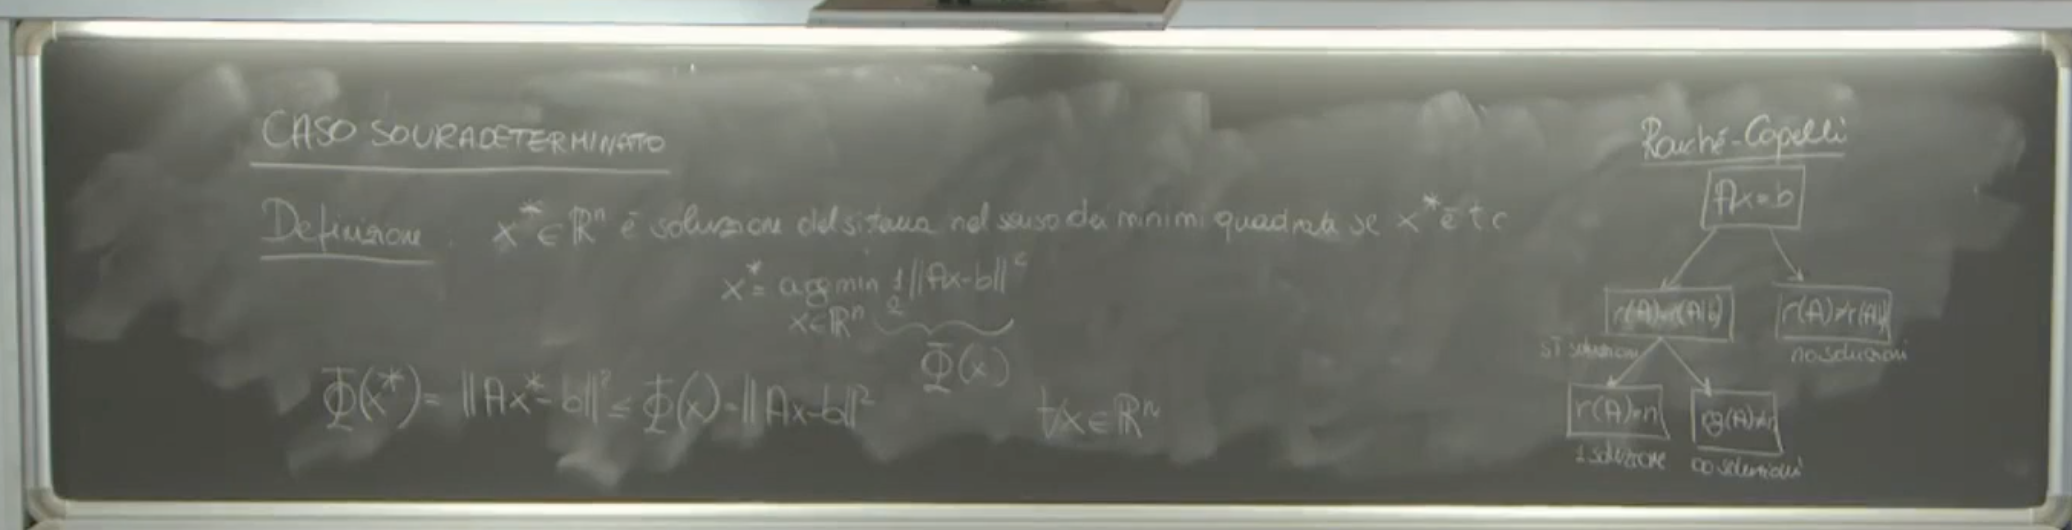 CASO SOURADETERMINATO
Definizione. x* ∈ ℝⁿ è soluzione del sistema nel senso dei minimi quadrati se x* è t.c
x* = argmin 1/2 ||Ax-b||²
x∈ℝⁿ
Φ(x)
Φ(x*) = ||Ax*-b||² ≤ Φ(x) = ||Ax-b||² ∀x∈ℝⁿ
Rouché-Capelli
Ax=b
r(A)=r(A|b) r(A)≠r(A|b)
SÌ soluzioni no soluzioni
r(A)=n rg(A)≠n
1 soluzione ∞ soluzioni